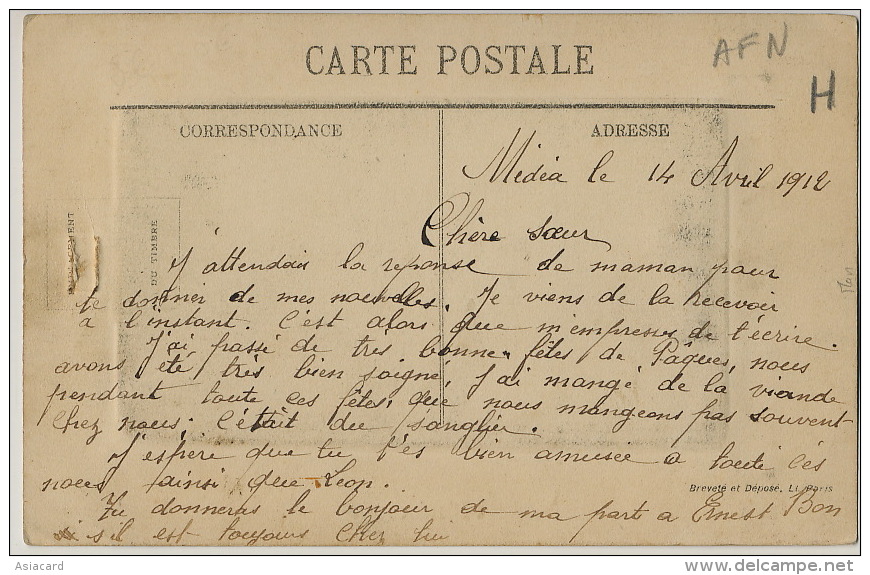 AFN
H
CARTE POSTALE
CORRESPONDANCE
ADRESSE
EMPLACEMENT
DU TIMBRE
Médéa le 14 Avril 1912
Chère sœur
J'attendais la reponse de maman pour
te donner de mes nouvelles. Je viens de la recevoir
a l'instant. C'est alors que m'empresse de t'écrire.
J'ai passé de très bonne fêtes de Pâques, nous
avons été très bien soigné, J'ai mangé de la viande
pendant toute ces fêtes, que nous mangeons pas souvent
chez nous; c'était du sanglier.
J'espère que tu t'es bien amusée a toute ces
noces ainsi que Leon.
Breveté et Déposé, Paris
Tu donneras le bonjour de ma part a Ernest Bon
s'il est toujours chez lui
Asiacard
delcampe.net